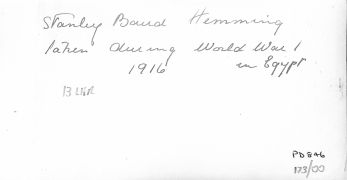 Stanley Baud Hemming
taken during World War 1
1916 in Egypt
PD846
173/00